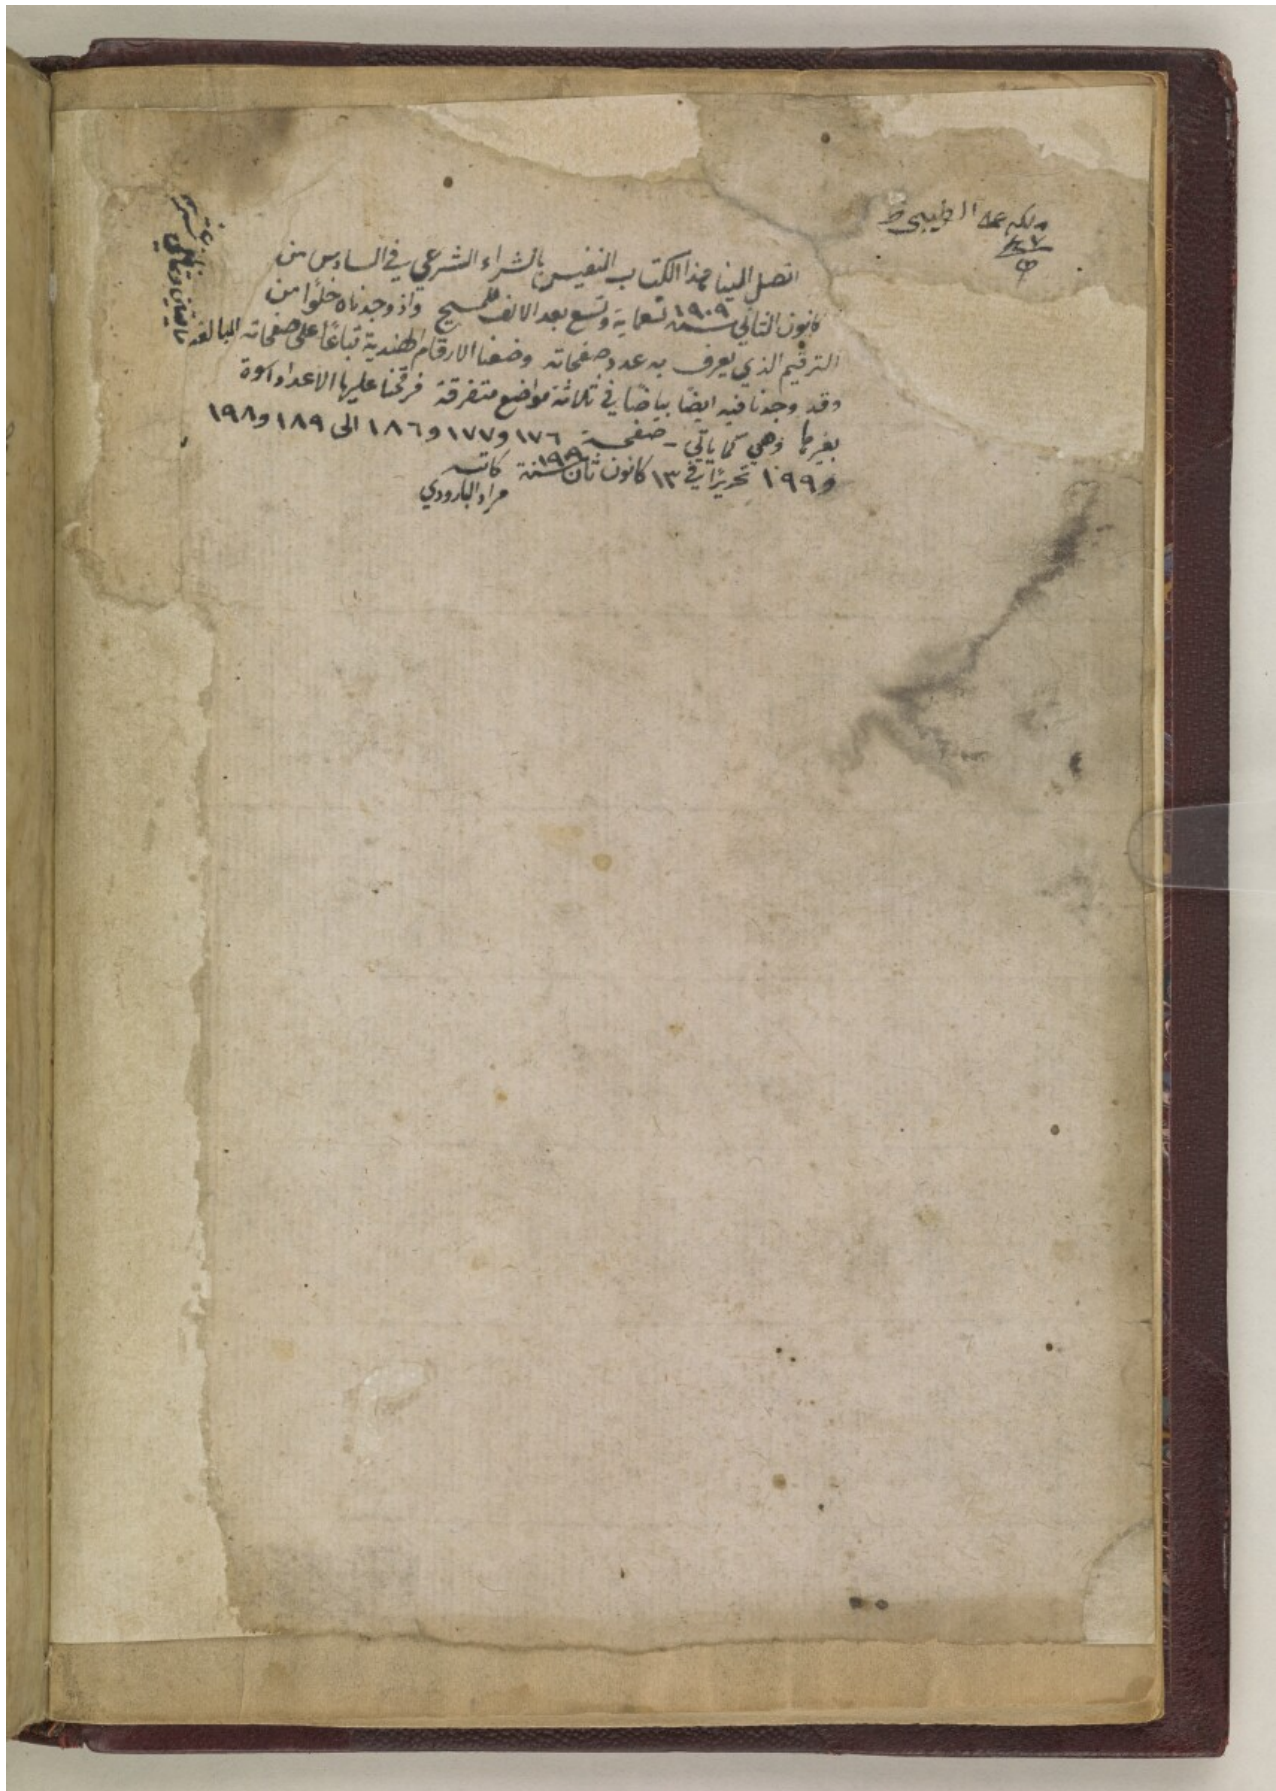 اتصل الينا هذا الكتاب النفيس بالشراء الشرعي في السادس من
كانون الثاني سنة ١٩٠٩ تسعماية وتسع بعد الالف للمسيح واذ وجدناه خلوًا من
الترقيم الذي يعرف به عدد صفحاته وضعنا الارقام الهندية تباعًا على صفحاته البالغة
مايتين
وقد وجدنا فيه ايضًا بياضًا في ثلاثة مواضع متفرقة فرقمنا عليها الاعداد اسوة
بغيرها وهي كما ياتي - صفحة ١٧٦ و١٧٧ و١٨٦ الى ١٨٩ و١٩٨
و١٩٩ تحريرًا في ١٣ كانون ثان سنة ١٩٠٩ كاتبه
مراد البارودي